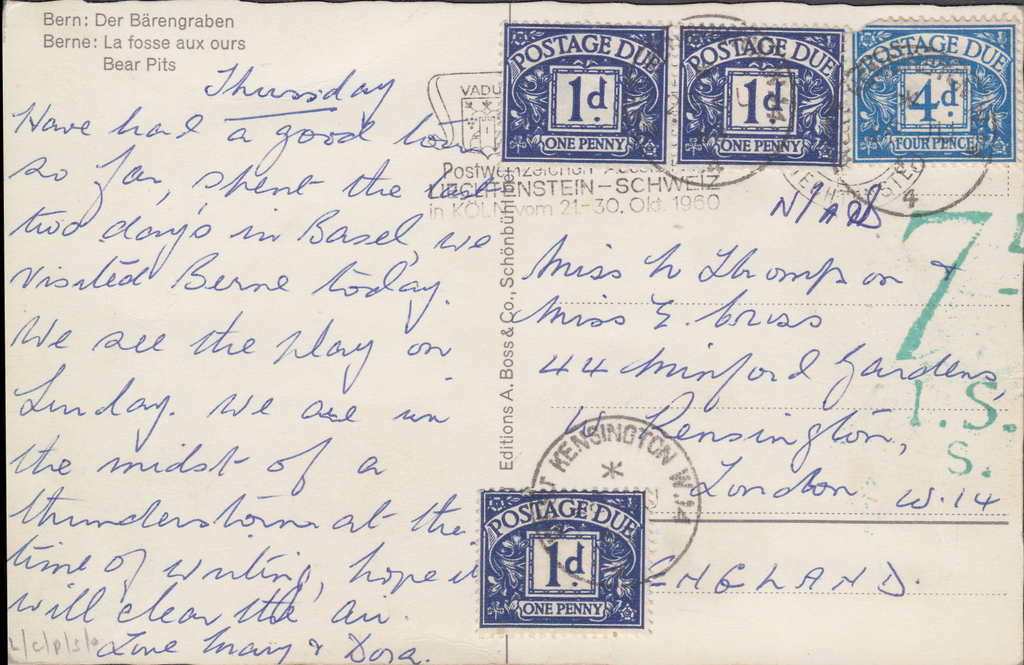 Bern: Der Bärengraben
Berne: La fosse aux ours
Bear Pits
Thursday
Have had a good
so far, spent the last
two days in Basel, we
visited Berne today.
We see the play on
Sunday. We are in
the midst of a
thunderstorm at the
time of writing, hope it
will clear the air.
Love Mary & Dora.
L/C/P/S/
Editions A. Boss & Co., Schönbühl
VADU
Postwertzeichen
LIECHTENSTEIN - SCHWEIZ
in KÖLN vom 21.-30. Okt. 1960
POSTAGE DUE
1d
ONE PENNY
POSTAGE DUE
1d
ONE PENNY
POSTAGE DUE
4d
FOUR PENCE
4
Miss W Thompson &
Miss E.
44 Minford Gardens
W Kensington,
London W.14
ENGLAND.
7
I.S.
S.
KENSINGTON W.14
POSTAGE DUE
1d
ONE PENNY